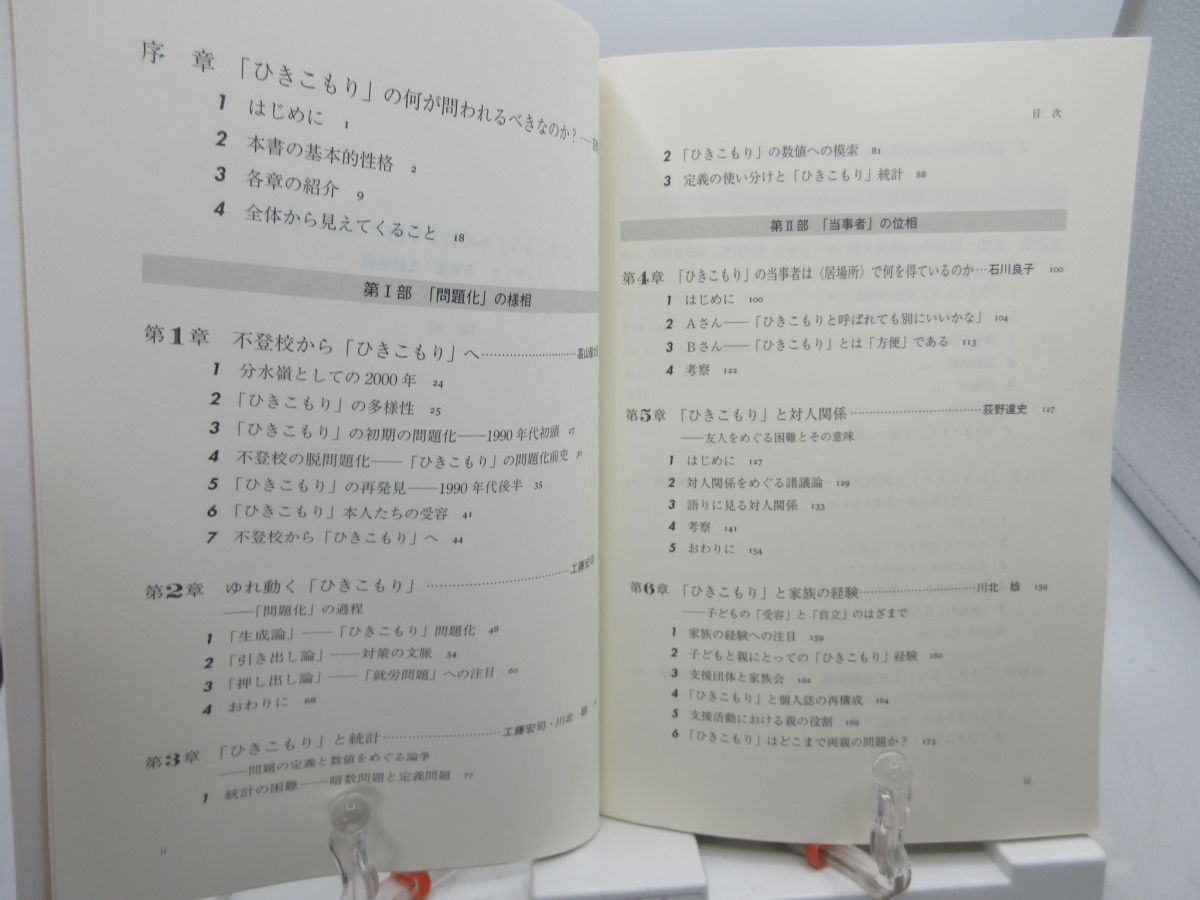 序 章 「ひきこもり」の何が問われるべきなのか?
1 はじめに 1
2 本書の基本的性格 2
3 各章の紹介 9
4 全体から見えてくること 18
第Ⅰ部 「問題化」の様相
第1章 不登校から「ひきこもり」へ
1 分水嶺としての2000年 24
2 「ひきこもり」の多様性 25
3 「ひきこもり」の初期の問題化——1990年代初頭 27
4 不登校の脱問題化——「ひきこもり」の問題化前史 30
5 「ひきこもり」の再発見——1990年代後半 35
6 「ひきこもり」本人たちの受容 41
7 不登校から「ひきこもり」へ 44
第2章 ゆれ動く「ひきこもり」 工藤宏司
——「問題化」の過程
1 「生成論」——「ひきこもり」問題化 48
2 「引き出し論」——対策の文脈 54
3 「押し出し論」——「就労問題」への注目 60
4 おわりに 68
第3章 「ひきこもり」と統計 工藤宏司・川北 稔
——問題の定義と数値をめぐる論争
1 統計の困難——暗数問題と定義問題 77
ii
目 次
2 「ひきこもり」の数値への模索 81
3 定義の使い分けと「ひきこもり」統計 88
第Ⅱ部 「当事者」の位相
第4章 「ひきこもり」の当事者は〈居場所〉で何を得ているのか…石川良子 100
1 はじめに 100
2 Aさん——「ひきこもりと呼ばれても別にいいかな」 104
3 Bさん——「ひきこもり」とは「方便」である 113
4 考察 122
第5章 「ひきこもり」と対人関係 荻野達史 127
——友人をめぐる困難とその意味
1 はじめに 127
2 対人関係をめぐる諸議論 129
3 語りに見る対人関係 133
4 考察 141
5 おわりに 154
第6章 「ひきこもり」と家族の経験 川北 稔 159
——子どもの「受容」と「自立」のはざまで
1 家族の経験への注目 159
2 子どもと親にとっての「ひきこもり」経験 160
3 支援団体と家族会 162
4 「ひきこもり」と個人誌の再構成 164
5 支援活動における親の役割 169
6 「ひきこもり」はどこまで両親の問題か? 173
iii